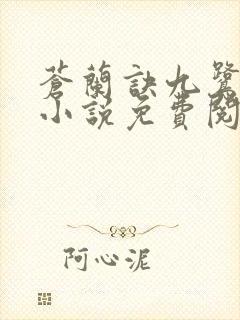 蒼蘭訣九鷺
小說免費閱
阿心泥